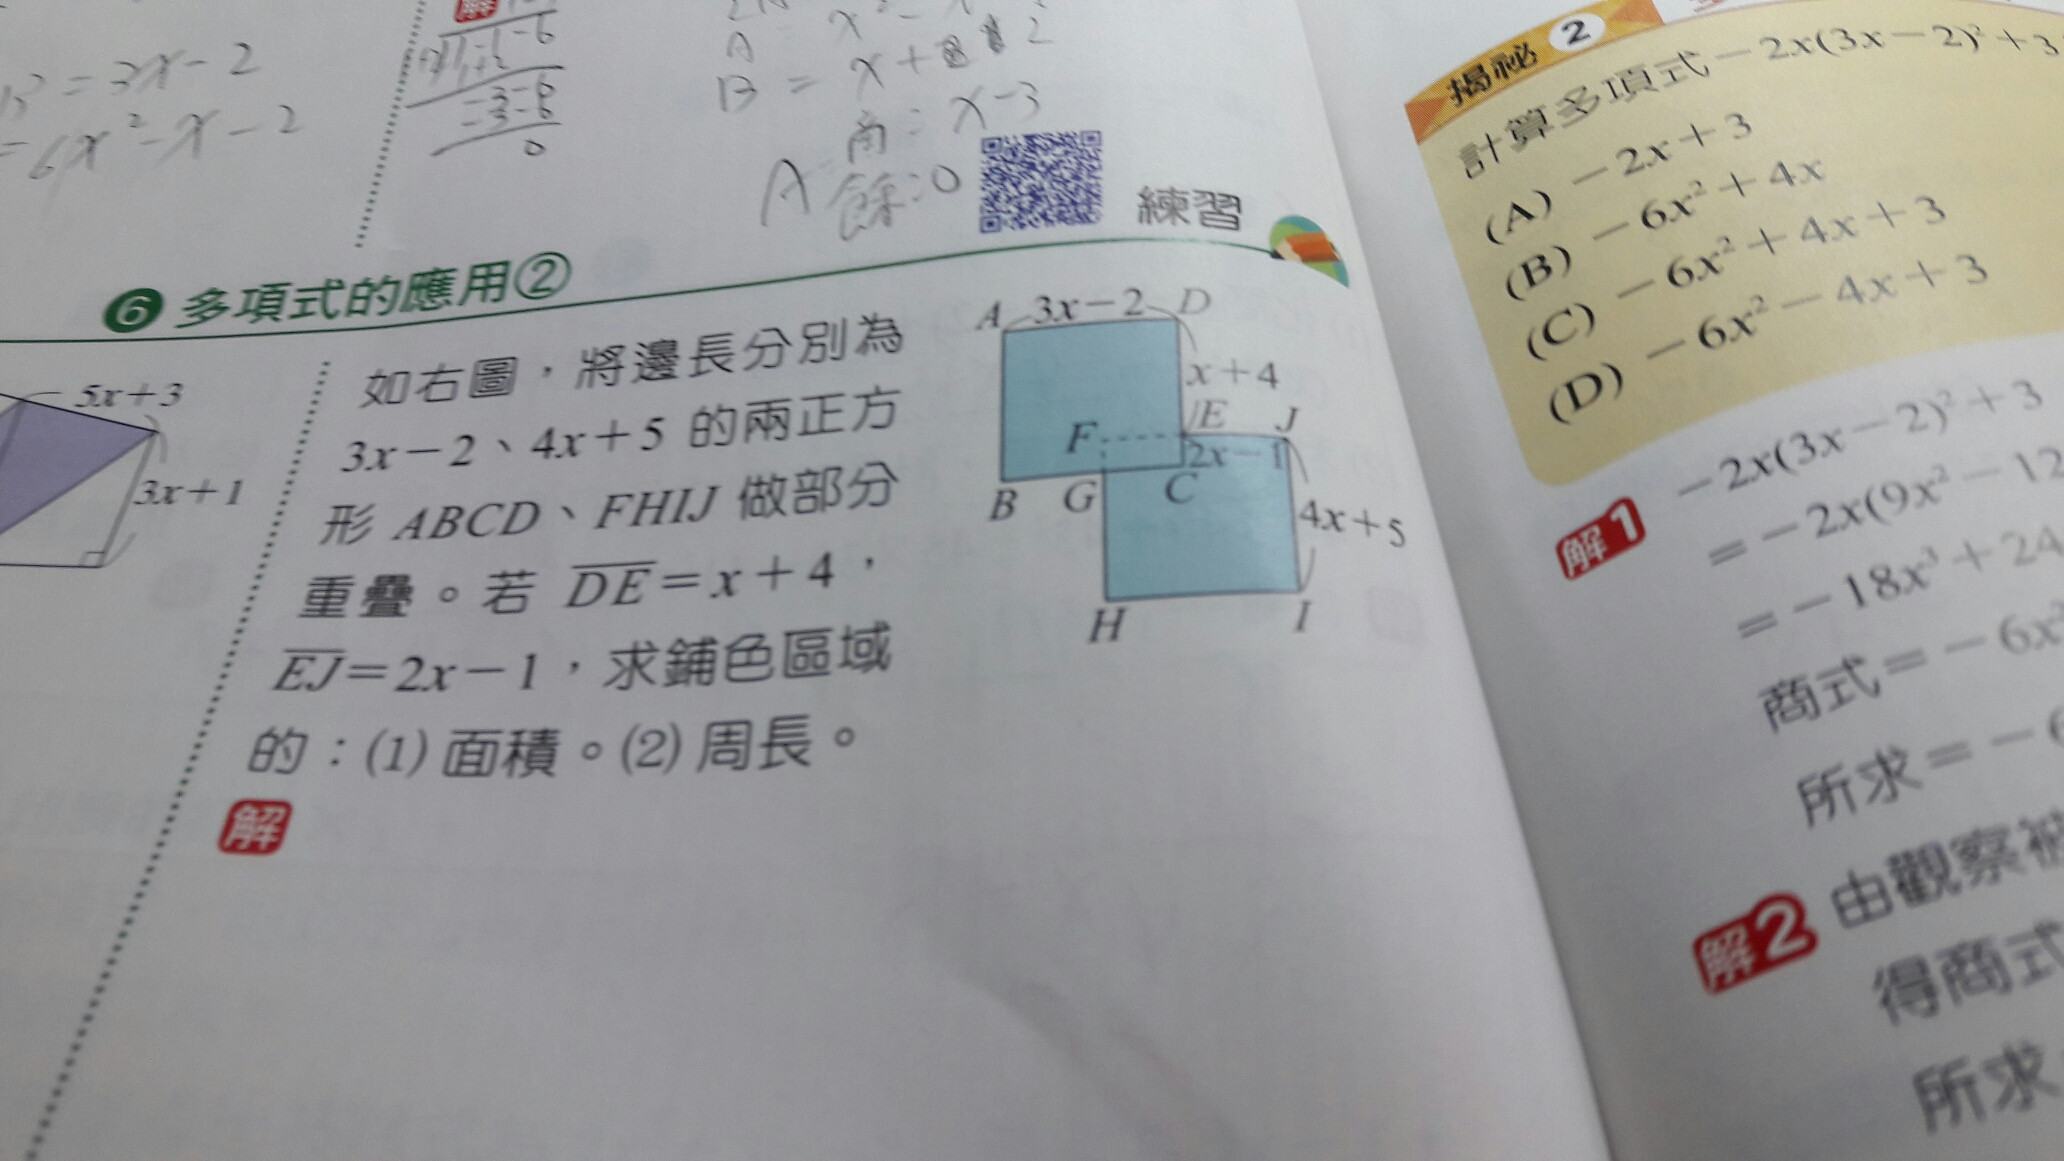 B² = 3x-2
= 6x²-x-2
解
-3-6
-3-6
0
A = x²-x
B = x+2
商: x-3
餘:0
練習
6 多項式的應用②
5x+3
3x+1
如右圖,將邊長分別為
3x-2、4x+5 的兩正方
形 ABCD、FHIJ 做部分
重疊。若 DE=x+4,
EJ=2x-1,求鋪色區域
的:(1) 面積。(2) 周長。
解
A 3x-2 D
x+4
F E J
2x-1
B G C
4x+5
H I
揭祕 2
計算多項式-2x(3x-2)²+3
(A) -2x+3
(B) -6x²+4x
(C) -6x²+4x+3
(D) -6x²-4x+3
解1 -2x(3x-2)²+3
=-2x(9x²-12
=-18x³+24
商式=-6x²
所求=-6
解2 由觀察被
得商式
所求